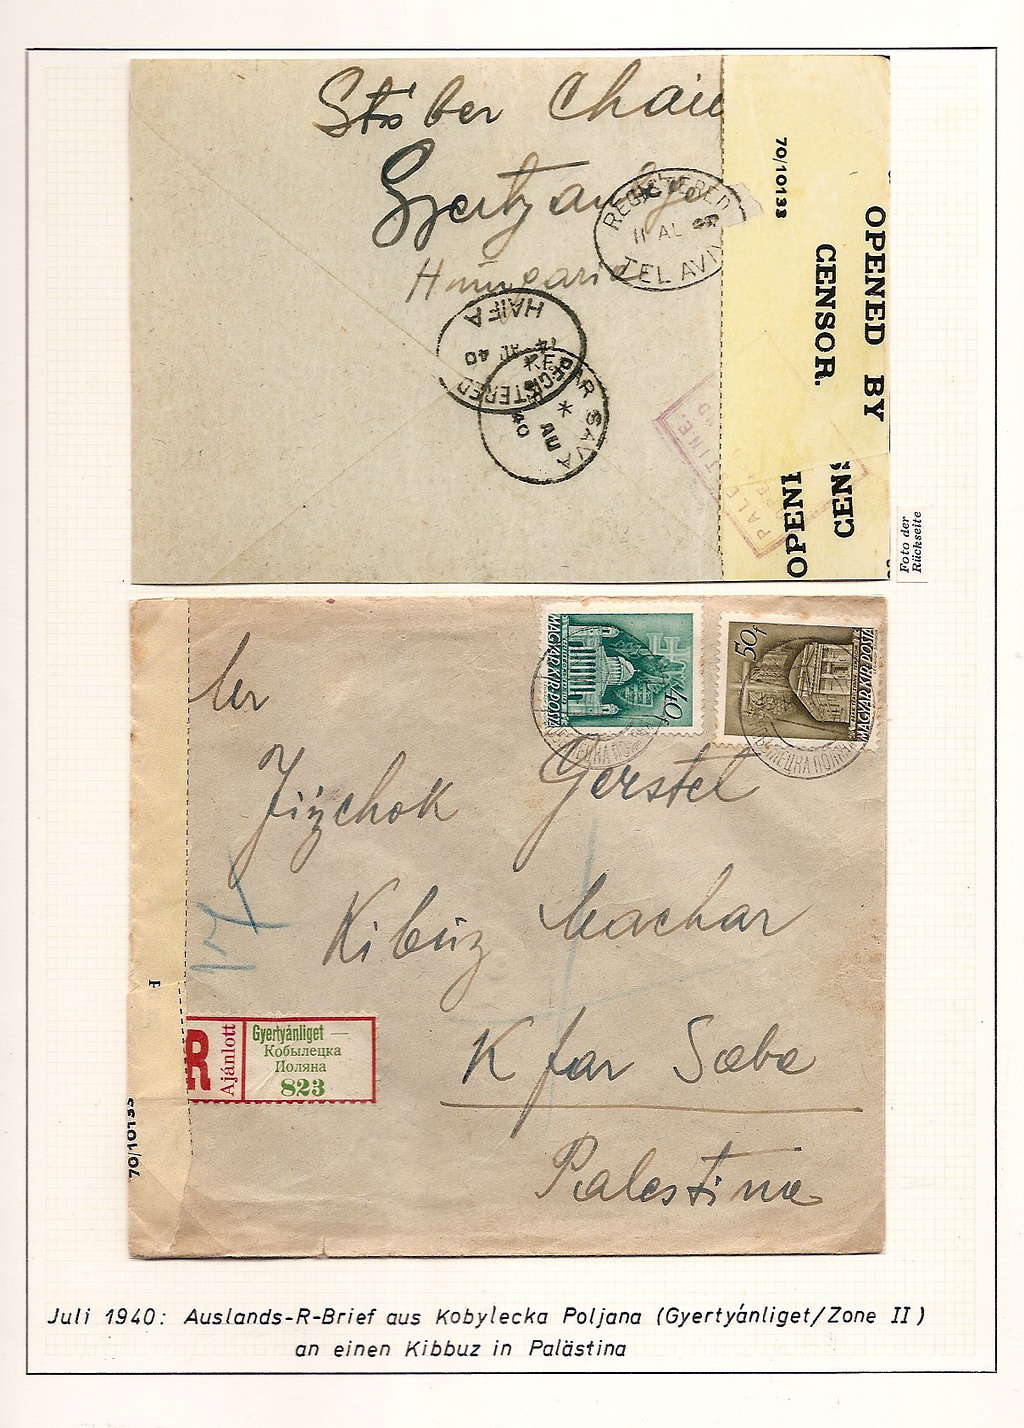 Stöber Chaim
Gyertyanliget
Hungaria
REGISTERED
11 AU 40
TEL AVIV
HAIFA
AU 40
REGISTERED
KEFAR SAVA
AU
40
PALESTINE.
70/10133
OPENED BY
CENSOR.
OPENE
CENS
Foto der
Rückseite
MAGYAR KIR. POSTA
40f
50f
MAGYAR KIR. POSTA
Gerstel
Kibuz Machar
Kfar Saba
Palestina
R
Ajánlott
Gyertyánliget —
Кобылецка
Поляна
823
70/10133
Juli 1940: Auslands-R-Brief aus Kobylecka Poljana (Gyertyánliget/Zone II)
an einen Kibbuz in Palästina